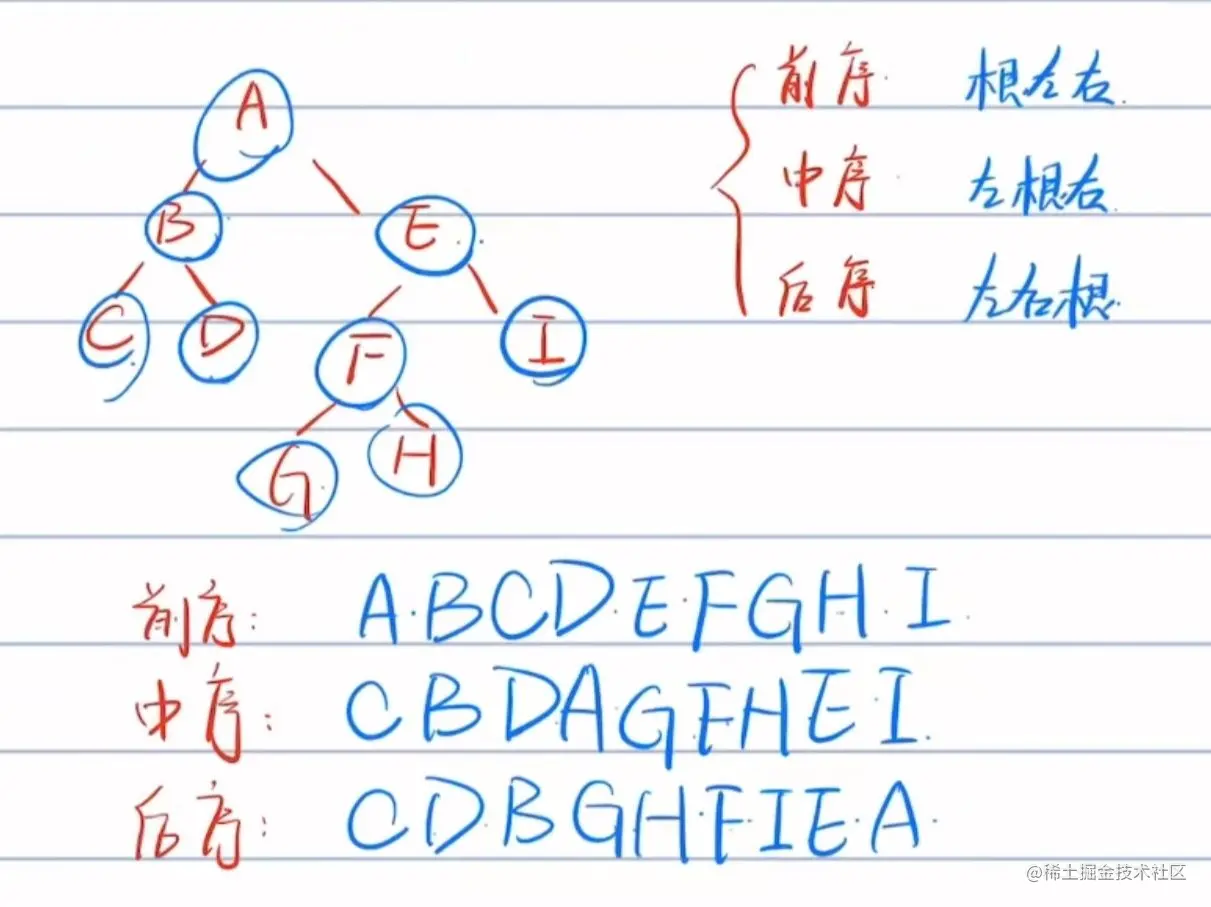 A
B E
C D F I
G H
前序 根左右
中序 左根右
后序 左右根
前序: ABCDEFGHI
中序: CBDAGFHEI
后序: CDBGHFIEA
@稀土掘金技术社区